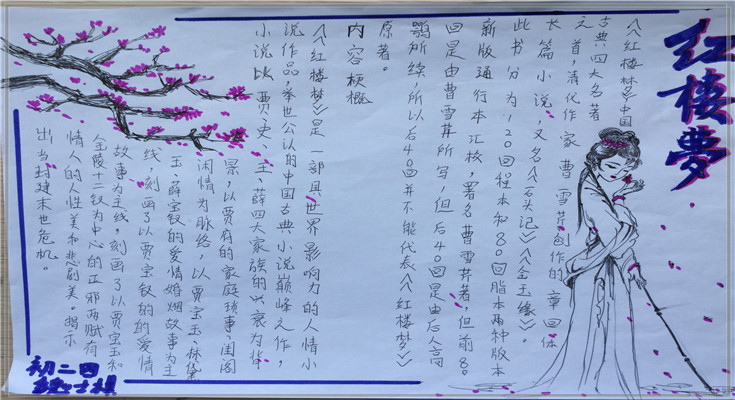 红楼夢
《红楼梦》中国
古典四大名著
之首,清化作家曹雪芹创作的章回体
长篇小说,又名《石头记》《金玉缘》。
此书分为120回程本和80回脂本两种版本
新版通行本汇核,署名曹雪芹著,但前80
回是由曹雪芹所写,但后40回是由后人高
鹗所续,所以后40回并不能代表《红楼梦》
原著。
内容梗概
《红楼梦》是一部具世界影响力的人情小
说作品,举世公认的中国古典小说巅峰之作,
小说以贾、史、王、薛四大家族的兴衰为背
景,以贾府的家庭琐事、闺阁
闲情为脉络,以贾宝玉、林黛
玉、薛宝钗的爱情婚烟故事为主
线,刻画了以贾宝钗的的爱情
故事为主线,刻画了以贾宝玉和
金陵十二钗为中心的正邪两赋有
情人的人性美和悲剧美。揭示
出当封建末世危机。
初二四